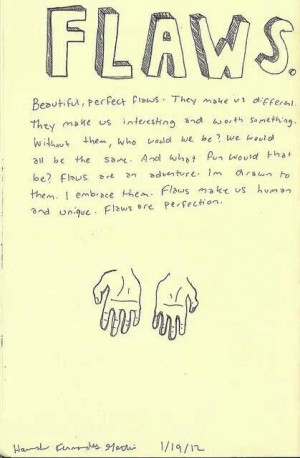 FLAWS.
Beautiful, perfect flaws. They make us different.
They make us interesting and worth something.
Without them, who would we be? We would
all be the same. And what fun would that
be? Flaws are an adventure. Im drawn to
them. I embrace them. Flaws make us human
and unique. Flaws are perfection.
1/19/12